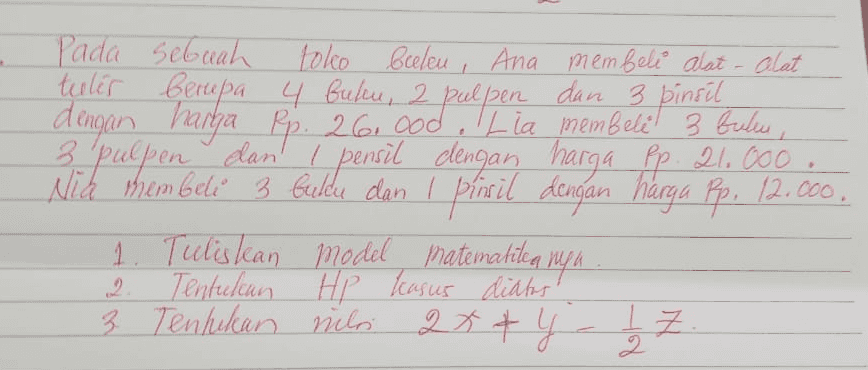 Pada sebuah toko Buku, Ana membeli alat - alat
tulis Berupa 4 Buku, 2 pulpen dan 3 pinsil
dengan harga Rp. 26.000. Lia membeli 3 Buku,
3 pulpen dan 1 pensil dengan harga Rp. 21.000.
Nia membeli 3 Buku dan 1 pinsil dengan harga Rp. 12.000.
1. Tuliskan model matematikanya.
2. Tentukan HP kasus diatas
3. Tentukan nilai 2x + y - 1/2 z.